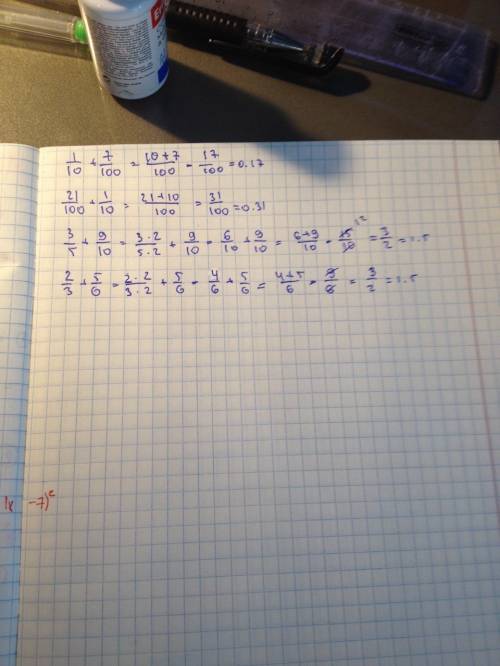 1/10 + 7/100 = 10+7/100 = 17/100 = 0.17
21/100 + 1/10 = 21+10/100 = 31/100 = 0.31
3/5 + 9/10 = 3·2/5·2 + 9/10 = 6/10 + 9/10 = 6+9/10 = 15/10 = 3/2 = 1.5
2/3 + 5/6 = 2·2/3·2 + 5/6 = 4/6 + 5/6 = 4+5/6 = 9/6 = 3/2 = 1.5
-7)²